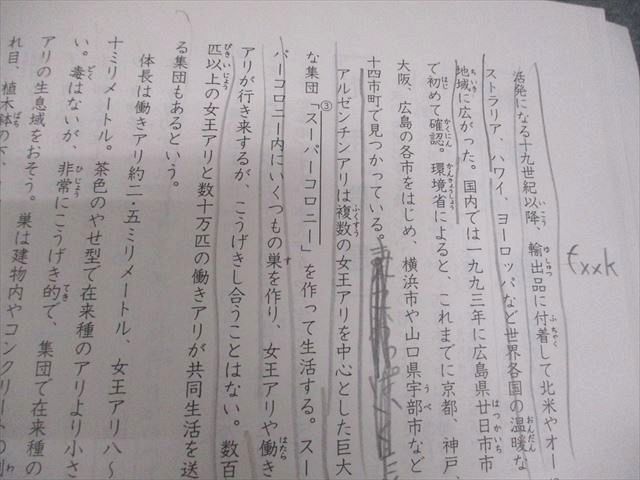 活発になる十九世紀以降、輸出品に付着して北米やオー
ストラリア、ハワイ、ヨーロッパなど世界各国の温暖な
地域に広がった。国内では一九九三年に広島県廿日市市
で初めて確認。環境省によると、これまでに京都、神戸、
大阪、広島の各市をはじめ、横浜市や山口県宇部市など
十四市町で見つかっている。
アルゼンチンアリは複数の女王アリを中心とした巨大
な集団「スーパーコロニー」を作って生活する。スー
③
パーコロニー内にいくつもの巣を作り、女王アリや働き
アリが行き来するが、こうげきし合うことはない。数百
匹以上の女王アリと数十万匹の働きアリが共同生活を送
る集団もあるという。
体長は働きアリ約二・五ミリメートル、女王アリ八〜
十ミリメートル。茶色のやせ型で在来種のアリより小さ
い。毒はないが、非常にこうげき的で、集団で在来種の
アリの生息域をおそう。巣は建物内やコンクリートの
れ目、植木鉢の下、